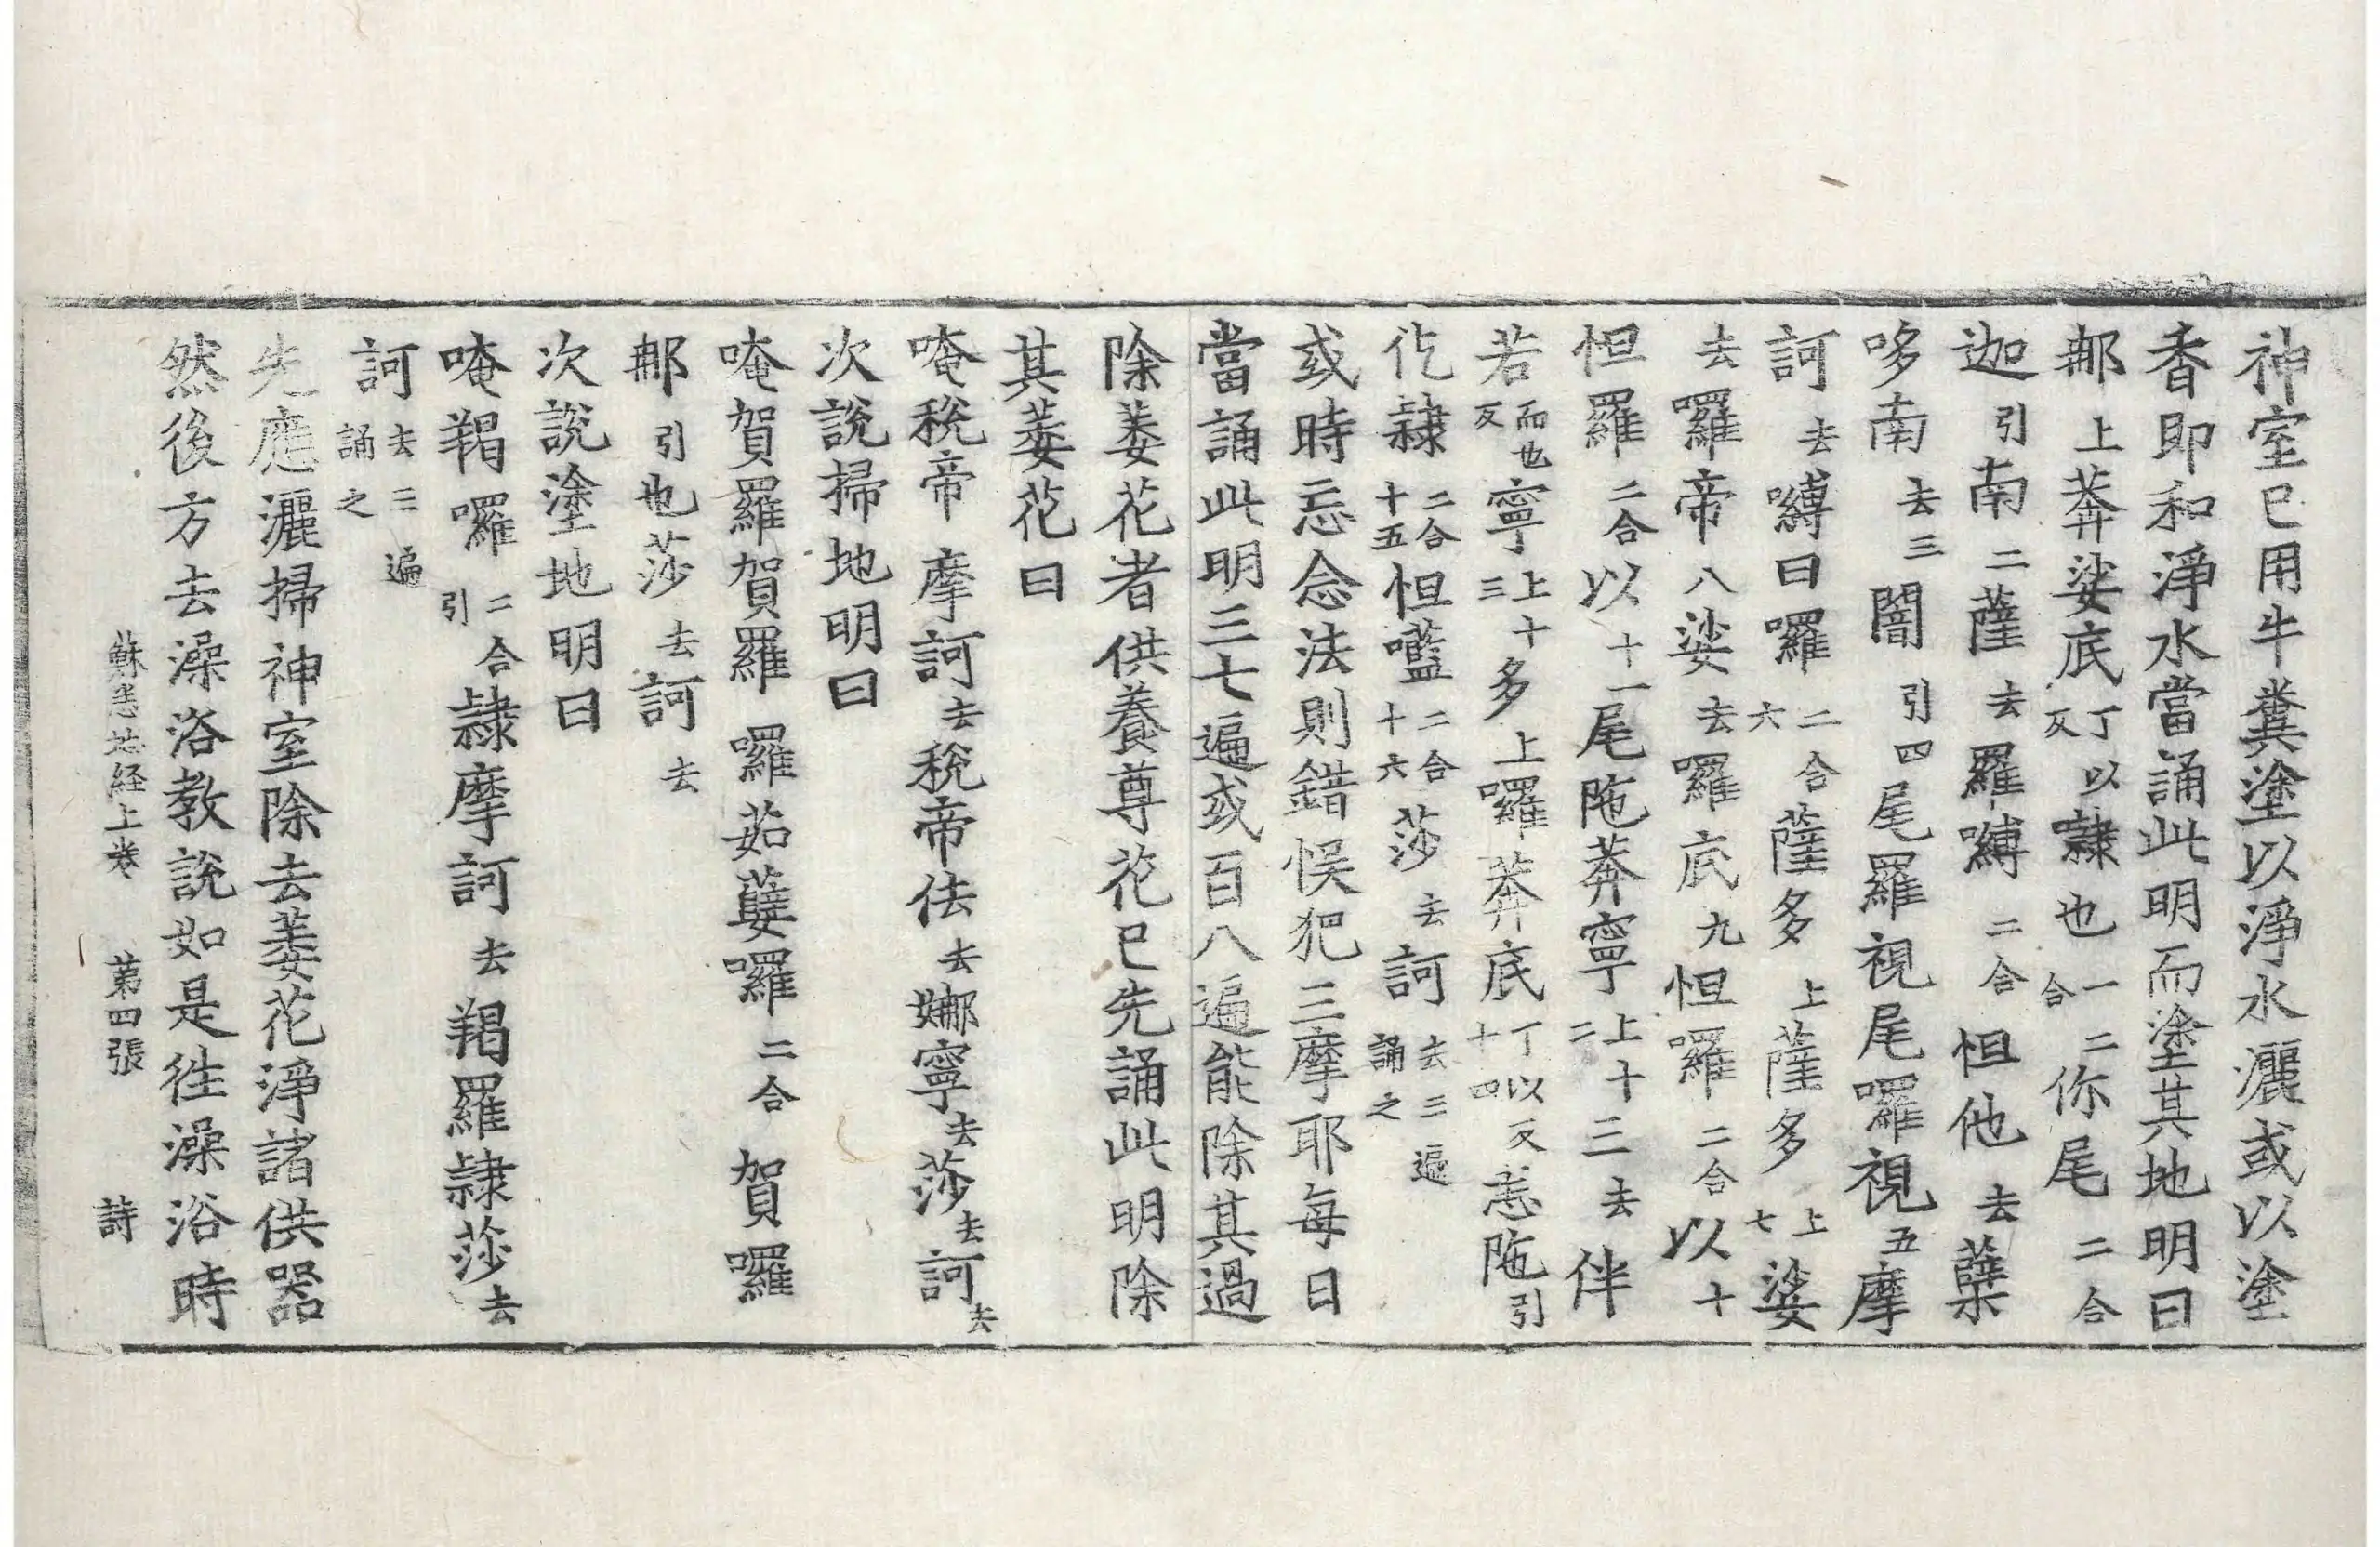 神室已用牛糞塗以淨水灑或以塗
香即和淨水當誦此明而塗其地明曰
那上莽娑底丁以反㘑也一二合你尾二合
迦引南二薩去羅嚩二合怛他去蘖
哆南去三闇引四尾羅視尾囉視五摩
訶去嚩曰囉二合六薩多上薩多上七娑
去囉帝八娑去羅底九怛囉二合以十
怛羅二合以十一尾陁莽寧上十二三去伴
若而也反寧上十三多上囉莽底丁以反十四恚陁引
仡隷二合十五怛㘕二合十六莎去訶去三遍誦之
或時忘念法則錯悮犯三摩耶每日
當誦此明三七遍或百八遍能除其過
除萎花者供養尊花已先誦此明除
其萎花曰
唵稅帝摩訶去稅帝佉去娜寧去莎去訶去
次說掃地明曰
唵賀羅賀羅囉茹蘖囉二合賀囉
那引也莎去訶去
次說塗地明曰
唵羯囉二合引隷摩訶去羯羅隷莎去
訶去三遍誦之
先應灑掃神室除去萎花淨諸供器
然後方去澡浴教說如是往澡浴時
蘇悉地経上卷 第四張 詩